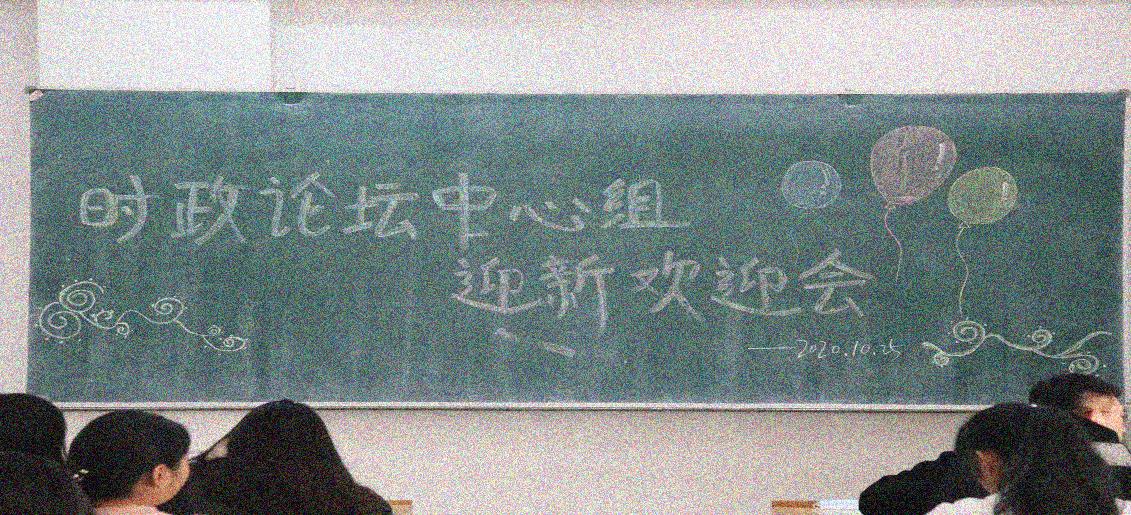 时政论坛中心组
迎新欢迎会
——2020.10.25